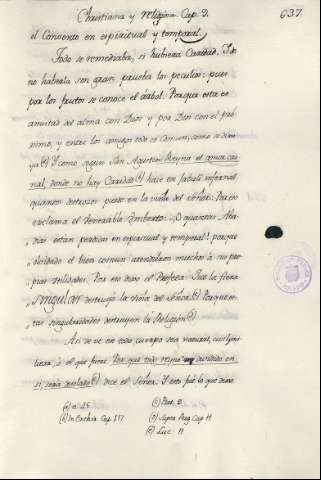 Christiana y religiosa Cap. 9.
637
el Convento en espiritual y temporal
Todo se remediaba, si hubiera Caridad. Y de
no haberla son gran prueba los peculios: pues
por los frutos se conoce el árbol. Porque esta es
amistad del alma con Dios y por Dios con el pró-
ximo, y entre los amigos todo es comun, como se dixo
ya (a) Y como segun San Agustin Reyna el amor car-
nal, donde no hay Caridad (b) hace en fabuli infernal
quantos destrozos puede en la viña del Señor: Por eso
exclama el Venerable Umberto: ¡O quantas Aba-
dias están perdidas en espiritual y temporal! porque
olvidado el bien comun atendieron mucho á su pro-
pias utilidades. Por eso dixo el Profeta: Que la fiera
singular destruyó la viña del Señor. Porque es-
tas singularidades destruyen la Religion
Asi se ve en todo cuerpo sea natural, civil, po-
litico, ó el que fuere. Por que todo reyno dividido en
si, sería desolado (e) dice el Señor. Y esto fué lo que dixo
(a) n. 25
(b) In Enchir. Cap. 117
(c) Psal.
(d) Supra Reg. Cap.
(e) Luc. 11